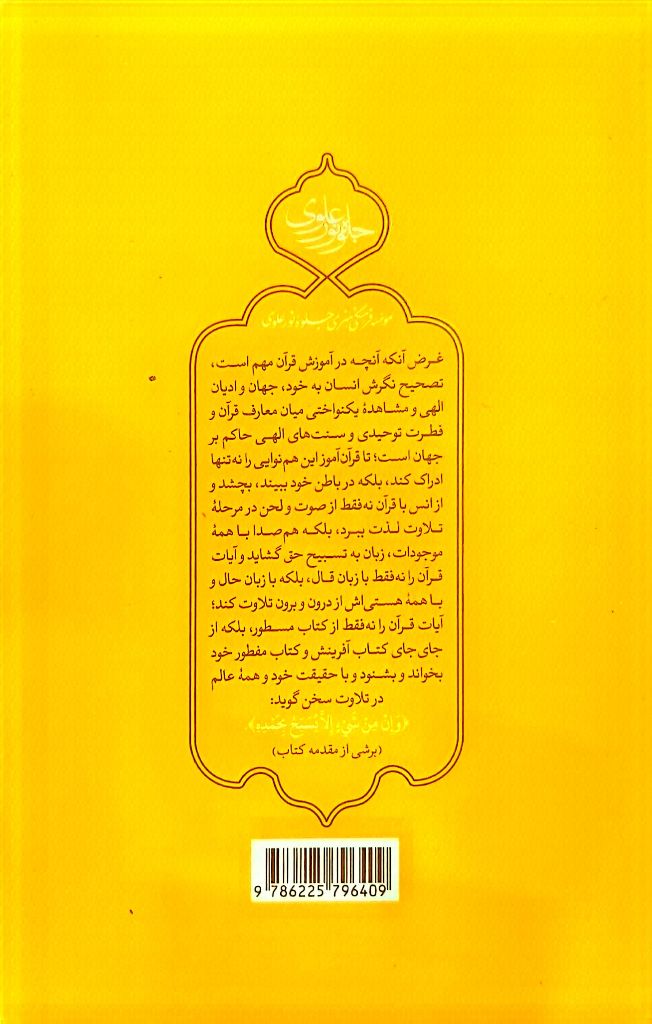 جلوه نور علوی
موسسه فرهنگی هنری جلوه نور علوی
غرض آنکه آنچه در آموزش قرآن مهم است،
تصحیح نگرش انسان به خود، جهان و ادیان
الهی و مشاهدهٔ یکنواختی میان معارف قرآن و
فطرت توحیدی و سنت‌های الهی حاکم بر
جهان است؛ تا قرآن‌آموز این هم‌نوایی را نه‌تنها
ادراک کند، بلکه در باطن خود ببیند، بچشد و
از انس با قرآن نه‌فقط از صوت و لحن در مرحلهٔ
تلاوت لذت ببرد، بلکه هم‌صدا با همهٔ
موجودات، زبان به تسبیح حق گشاید و آیات
قرآن را نه‌فقط با زبان قال، بلکه با زبان حال و
با همهٔ هستی‌اش از درون و برون تلاوت کند؛
آیات قرآن را نه‌فقط از کتاب مسطور، بلکه از
جای جای کتاب آفرینش و کتاب مفطور خود
بخواند و بشنود و با حقیقت خود و همهٔ عالم
در تلاوت سخن گوید:
﴿وَإِنْ مِنْ شَيْءٍ إِلَّا يُسَبِّحُ بِحَمْدِهِ﴾.
(برشی از مقدمه کتاب)
9 786225 796409